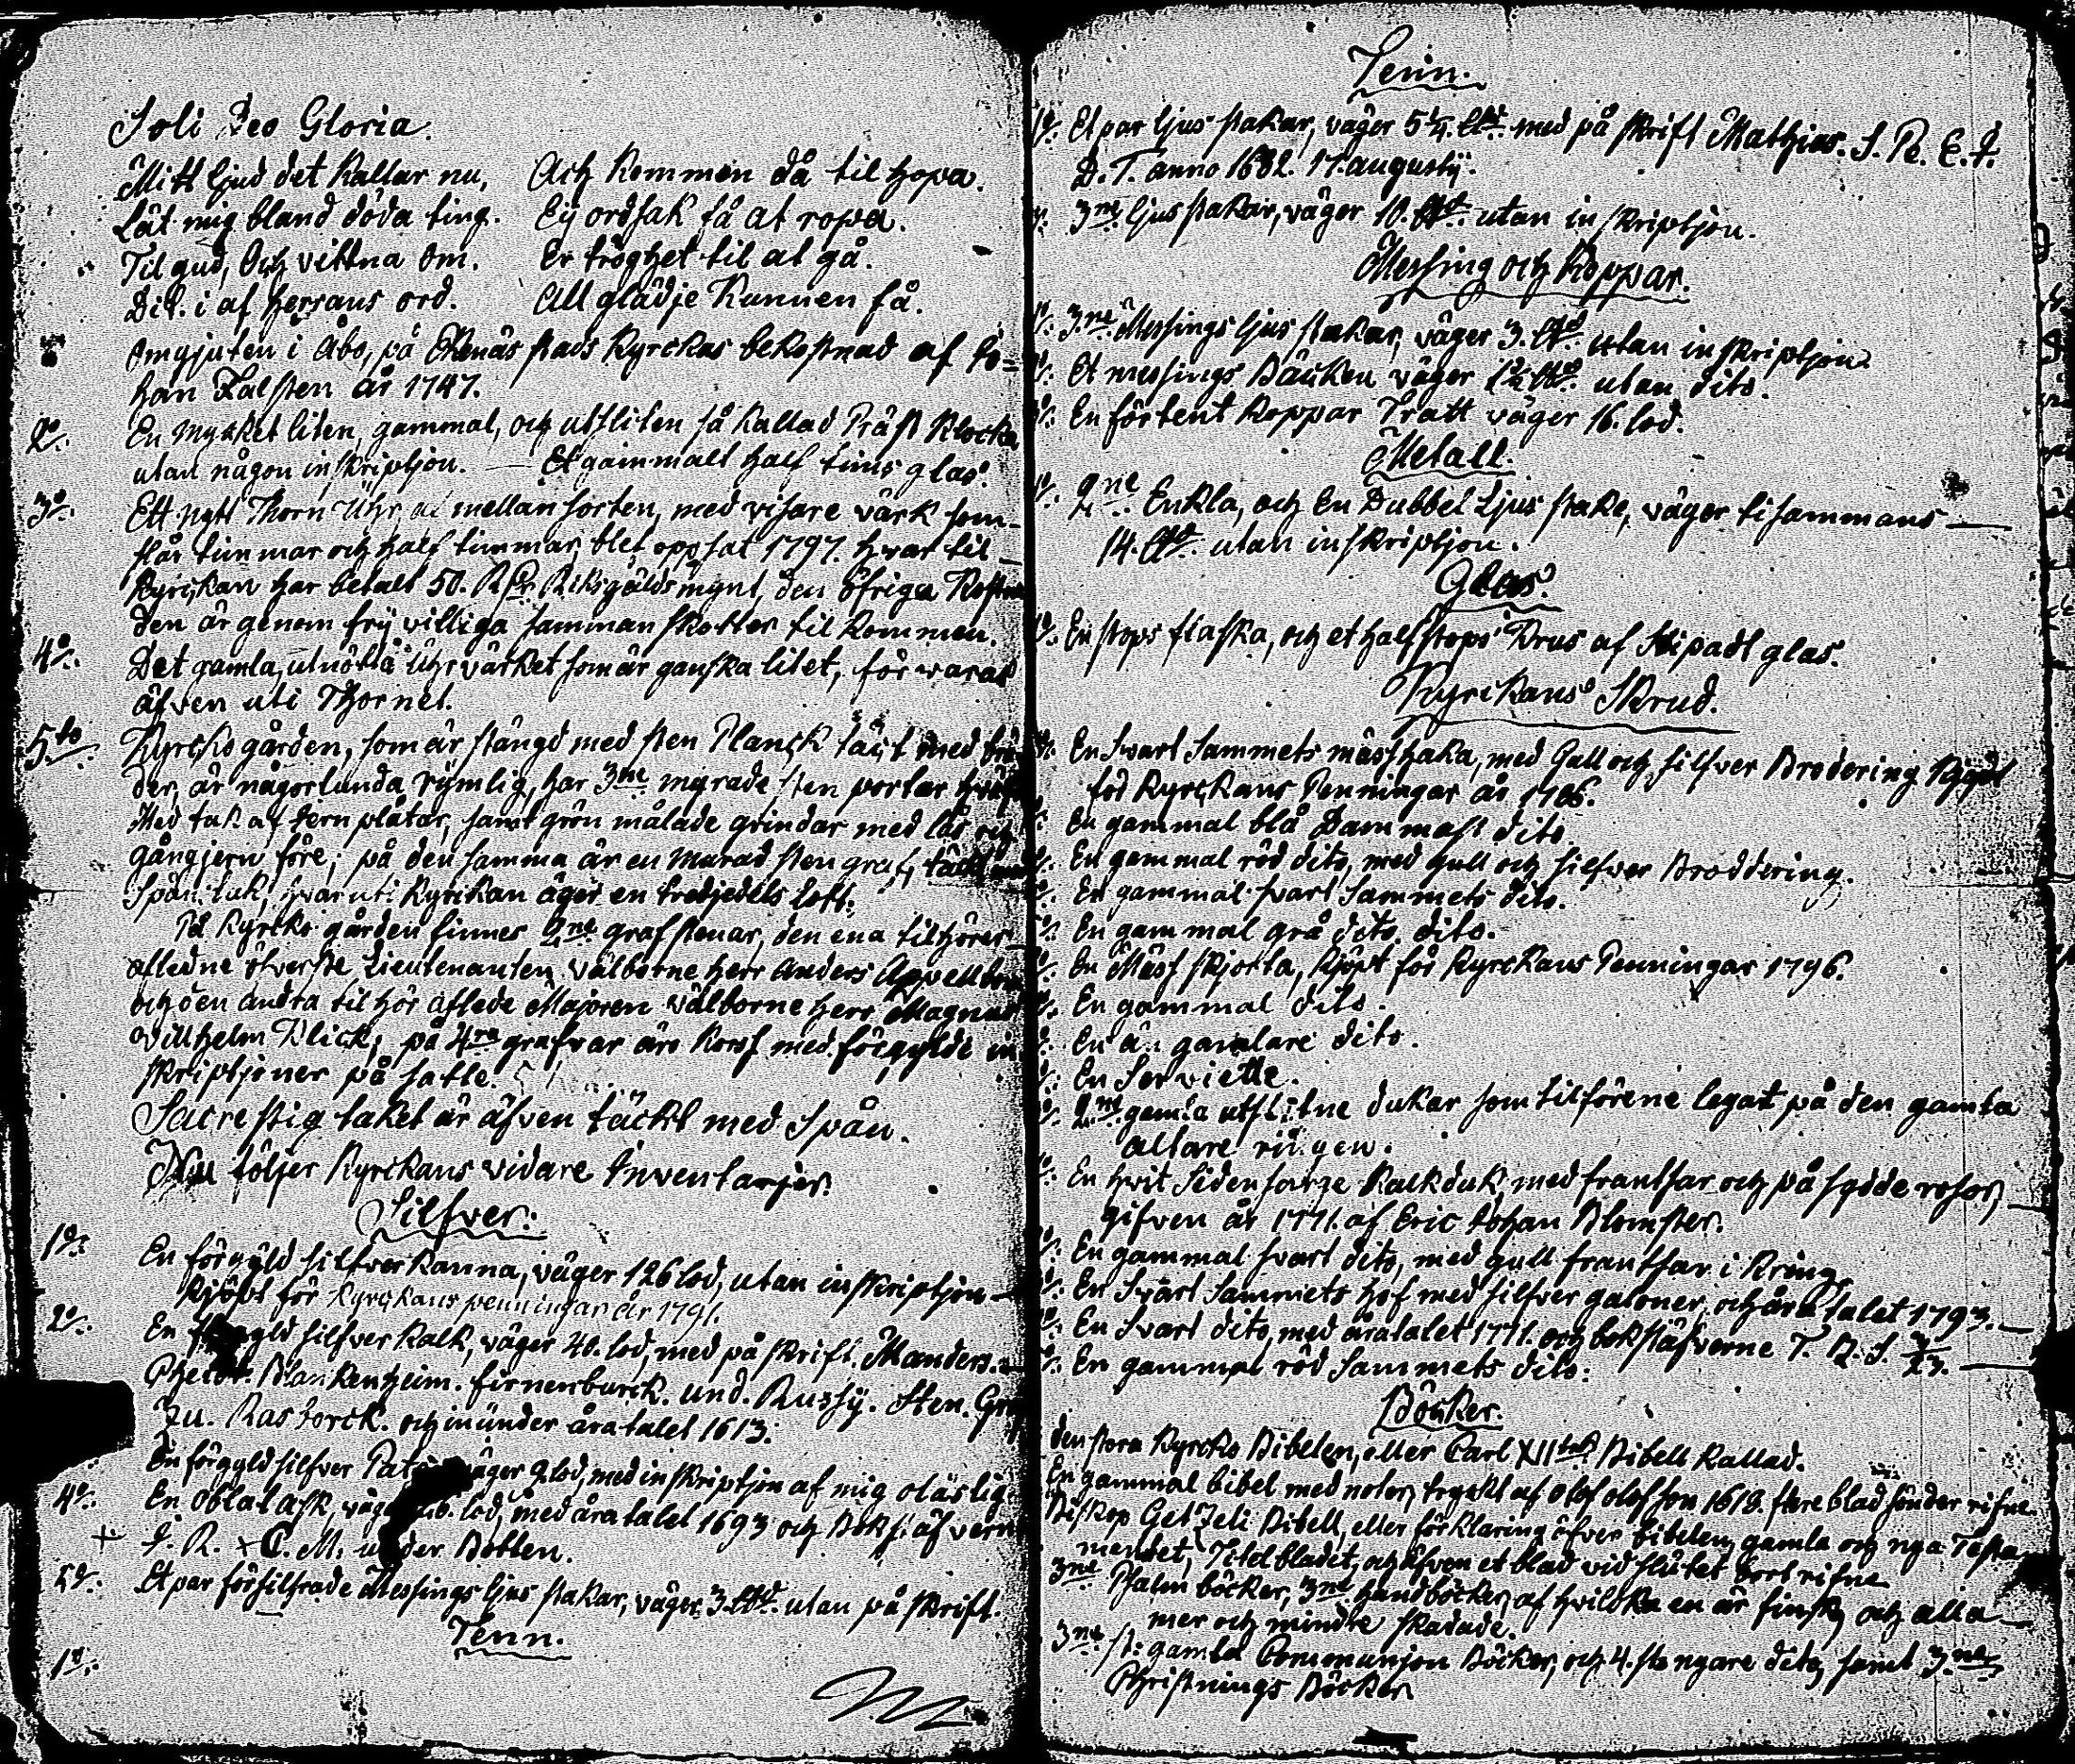 Soli Deo Gloria.
Mitt ljud det kallar nu, Och kommen då til hopa.
Låt mig bland döda ting. Eij ordsak få at ropa.
Til gud, Och vittna om. Er tröghet til at gå.
Did. i af herrans ord. All glädje kunnen få.
Omgjuten i Åbo, på Ekenäs stads kyrckas bekostnad af Jo=
han Falsten år 1747.
2o. En mycket liten, gammal, och utsliten så kallad Präst klocka
utan någon inskriptjon. — Et gammalt half tims glas.
3o. Ett nytt Thorn Uhr af mellan sorten, med visare värk som
slår timmar och half timmar, blef oppsat 1797. hvar til
kyrckan har betalt 50. Rdr Riksgälds mynt, den öfriga kostna
den är genom frij villiga samman skotter til kommen.
4o. Det gamla, utnötta Uhrvärket som är ganska litet, för waras
äfven uti Thornet.
5to. Kyrcko gården, som är stängd med sten Planck täckt med brä
der, är någorlunda rymlig, har 3ne murade sten portar
Med tak af Jern plåtar, samt grön målade grindar med lås och
gångjern före; på den samma är en murad sten graf, täckt med
spån tak, hvar uti kyrckan äger en tredjedels lott.
På kyrcko gården finnes 2ne graf stenar, den ena tilhörer
afledne öfverste Lieutenanten välborne herr Anders Appelbom
och den andra til hör aflede Majoren välborne herr Magnus
Willhelm Klick; på 4ra grafvar äro korss med förgylde in
skriptjoner på satte.
Sacrestig taket är äfven täckt med Spån.
Nu följer Kyrckans vidare Inventarjer.
Silfver.
1o. En förgyld silfver kanna, väger 126 lod, utan inskriptjon —
kjöpt för kyrckans penningar år 1791.
2o. En förgyld silfver kalk, väger 40. lod, med på skrift. Manders.
Blankenheim. firnenburck. und. Russy. Sten. Gr
Zu. Rasborck. och inunder åratalet 1613.
En förgyld silfver Paten väger 9. lod, med inskriptjon af mig oläslig.
4o. En Oblat ask, väger lod, med åratalet 1693 och Bokstäfvern
+ J. R. + C. M. under Botten.
5o. Et par försilfrade Messings ljus stakar, väger 3. utan på skrift.
Tenn.
1o.
Tenn.
1o. Et par ljus stakar, väger 5 1/4. med på skrift Mathias. S. Pe. E. J.
D. T. anno 1682. 17. augusty.
3ne ljus stakar, väger 10. utan in skriptjon.
Messing och Koppar.
3ne Messings ljus stakar, väger 3. utan in skriptjon.
Et messings Bäcken väger 1 1/2 utan dito.
En förtent Koppar Tratt väger 16. lod.
Metall.
2ne Enkla, och En Dubbel Ljus stake, väger tisammans —
14. utan inskriptjon.
Glas.
En stops flaska, och et half stops Krus af Slipadt glas.
Kyrckans Skrud.
En Svart Sammets mässhaka, med Gull och silfver Brodering Kjöpt
för Kyrckans Penningar år 1786.
En gammal blå Dammast dito
En gammal röd dito, med gull och silfver Broddering.
En gammal svart Sammets dito.
En gammal grå dito dito.
En Mäss skjorta, kjöpt för Kyrckans Penningar 1796.
En gammal dito.
En än gamlare dito.
En Serviette.
2ne gamla utslitne dukar som tilförene legat på den gamla
altare ringen.
En hvit Siden sarge kalkduk, med frantsar och på sydde rosor,
gifven år 1771. af Eric Johan Blomster.
En gammal svart dito, med gull frantsar i kring.
En Svart Sammets håf med silfver galoner, och åra talet 1793. —
En Svart dito, med åratalet 1771. och bokstäfverne T. R. S. 3/23. —
En gammal röd Sammets dito:
Böcker.
den stora Kyrcko Bibelen, eller Carl XIItes Bibell kallad.
En gammal bibel med noter, tryckt af olof olofson 1618. flere blad sönder rifne
Biskop Getzeli Bibell, eller förklaring öfver bibelen, gamla och nya Testa
mentet, Titel bladet, och äfven et blad vid slutet bort rifne
3ne Psalm böcker, 3ne handböcker, af hvilcka en är finsk, och alla
mer och mindre skadade.
3ne st: gamla Communjon Böcker, och 4. st. nyare dito, samt 3ne
Christnings Böcker